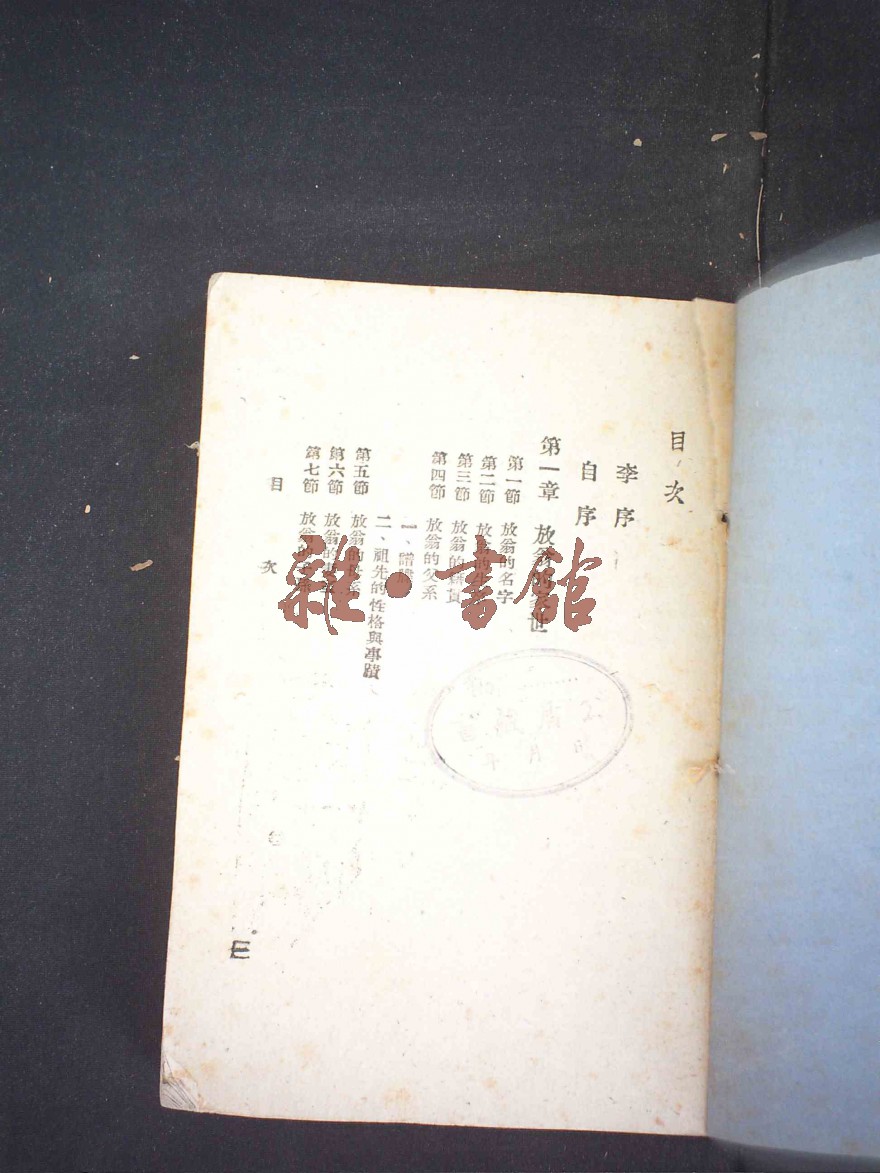 目次
李序
自序
第一章 放翁的家世
第一節 放翁的名字
第二節 放翁的生
第三節 放翁的籍貫
第四節 放翁的父系
一、譜牒
二、祖先的性格與事蹟
第五節 放翁的母系
第六節 放翁的
第七節 放翁的
目次
雜·書館